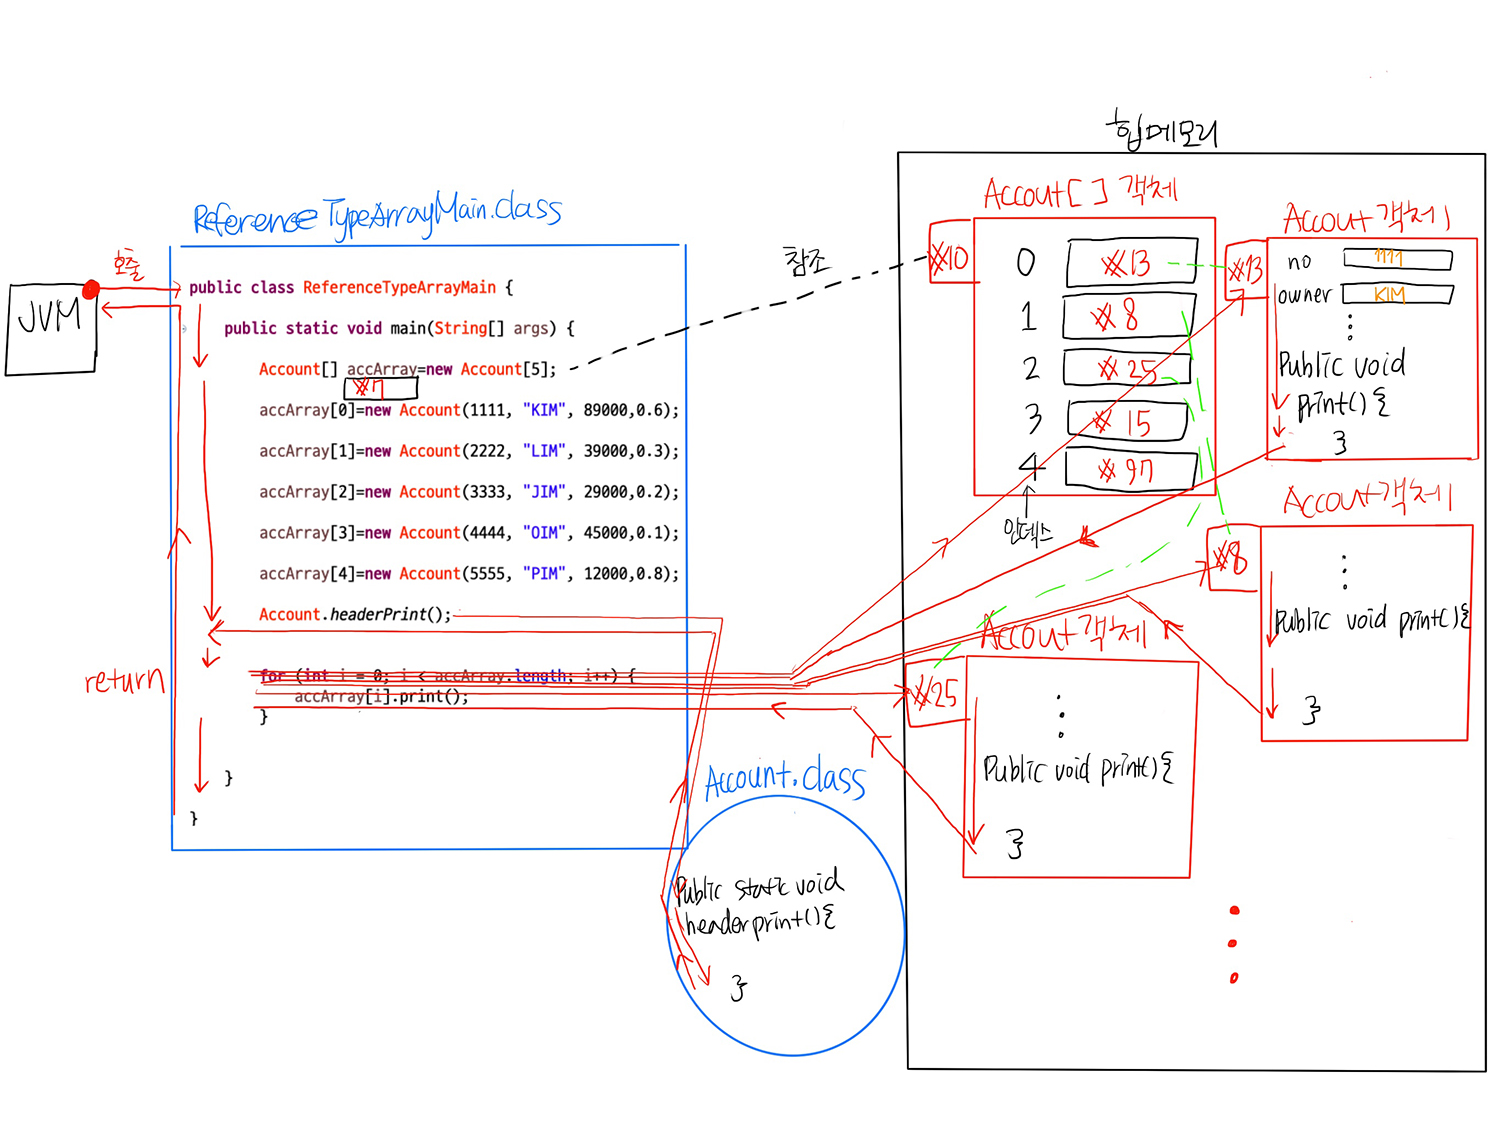 힙메모리
Reference TypeArrayMain.class
호출
JVM
public class ReferenceTypeArrayMain {
public static void main(String[] args) {
Account[] accArray=new Account[5];
accArray[0]=new Account(1111, "KIM", 89000,0.6);
accArray[1]=new Account(2222, "LIM", 39000,0.3);
accArray[2]=new Account(3333, "JIM", 29000,0.2);
accArray[3]=new Account(4444, "OIM", 45000,0.1);
accArray[4]=new Account(5555, "PIM", 12000,0.8);
Account.headerPrint();
for (int i = 0; i < accArray.length; i++) {
accArray[i].print();
}
}
}
return
참조
Account.class
Public static void
headerprint(){
}
Accout[ ] 객체
※10
0 ※13
1 ※8
2 ※25
3 ※15
4 ※97
인덱스
Accout객체
※13
no 1111
owner KIM
Public void
print(){
}
Accout객체
※8
Public void print(){
}
Accout객체
※25
Public void print(){
}